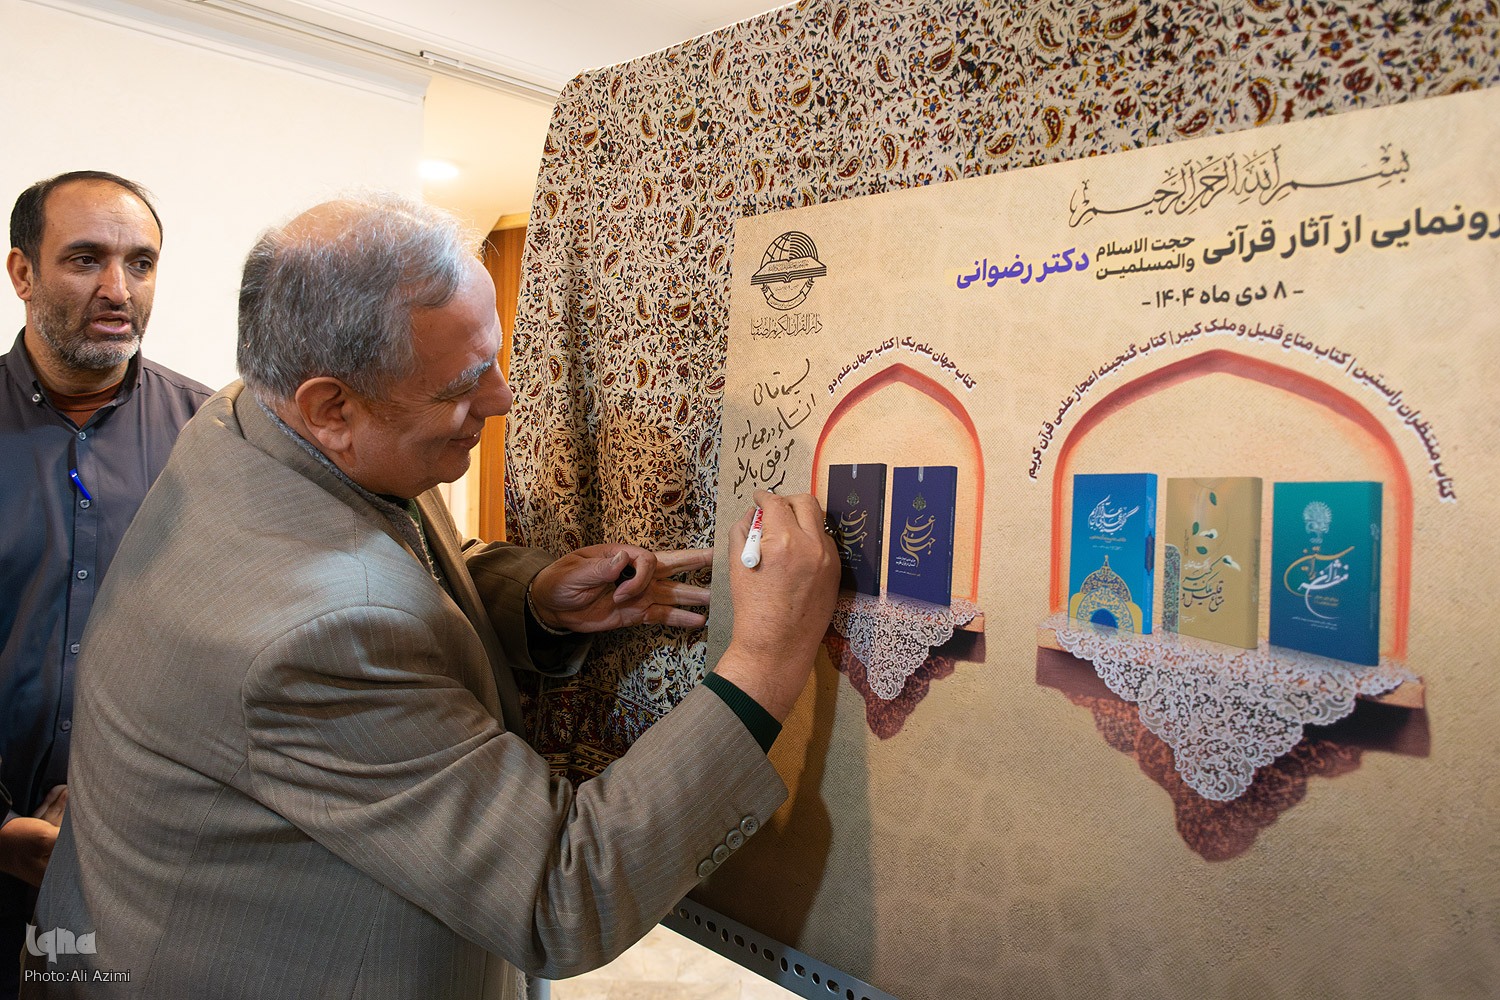 بسم الله الرحمن الرحیم
رونمایی از آثار قرآنی حجت الاسلام والمسلمین دکتر رضوانی
- ۸ دی ماه ۱۴۰۴ -
دارالقرآن الکریم اصفهان
کتاب منتظران راستین | کتاب متاع قلیل و ملک کبیر | کتاب گنجینه اعجاز علمی قرآن کریم
کتاب جهان علم یک | کتاب جهان علم دو
بسمه تعالی
انشاء در همه امور
موفق باشید
جهان علم
جهان علم
منتظران راستین
Iqna
Photo:Ali Azimi